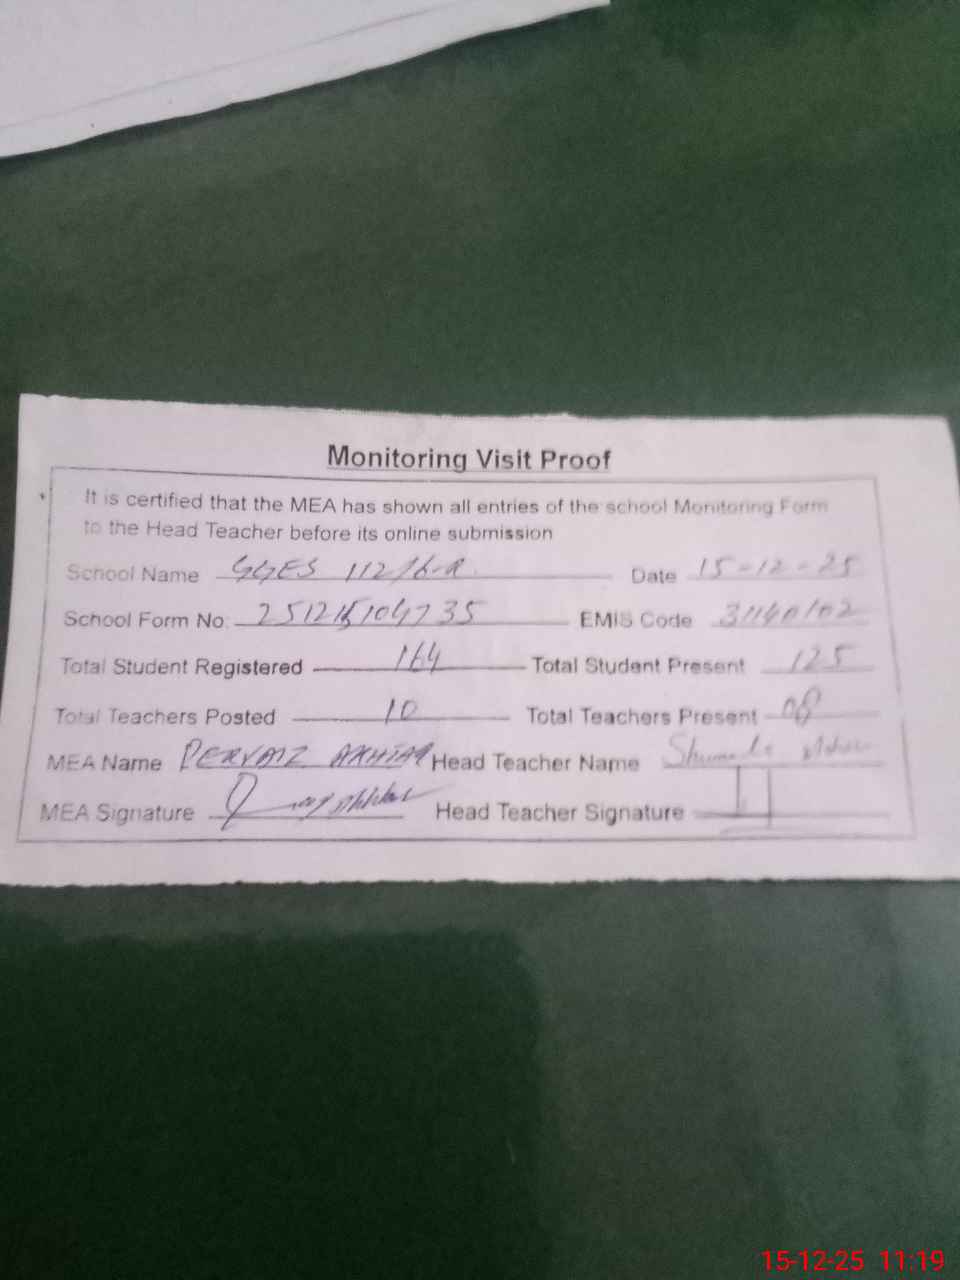 Monitoring Visit Proof
It is certified that the MEA has shown all entries of the school Monitoring Form
to the Head Teacher before its online submission
School Name GGES 112/6-R Date 15-12-25
School Form No: EMIS Code 31140102
Total Student Registered 164 Total Student Present 125
Total Teachers Posted 10 Total Teachers Present 08
MEA Name PERVAIZ AKHTAR Head Teacher Name
MEA Signature Head Teacher Signature
15-12-25 11:19